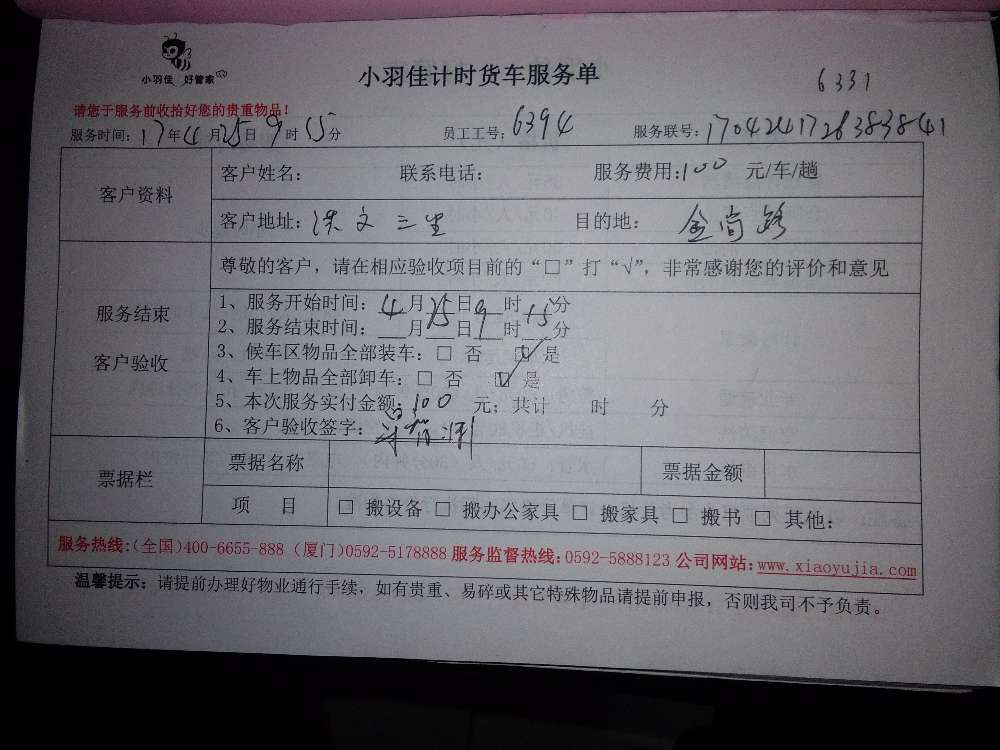 小羽佳 好管家
小羽佳计时货车服务单
6331
请您于服务前收拾好您的贵重物品!
服务时间:17年4月25日9时15分 员工工号:6394 服务联号:17042417263838341
客户资料
客户姓名: 联系电话: 服务费用:100 元/车/趟
客户地址:洪文三里 目的地: 金尚路
服务结束
客户验收
尊敬的客户,请在相应验收项目前的“□”打“√”,非常感谢您的评价和意见
1、服务开始时间:4月25日9时15分
2、服务结束时间:__月__日__时__分
3、候车区物品全部装车:□ 否 □ 是
4、车上物品全部卸车:□ 否 ☑ 是
5、本次服务实付金额:100 元;共计 时 分
6、客户验收签字:
票据栏
票据名称 票据金额
项 目 □ 搬设备 □ 搬办公家具 □ 搬家具 □ 搬书 □ 其他:
服务热线:(全国)400-6655-888 (厦门)0592-5178888 服务监督热线:0592-5888123 公司网站:www.xiaoyujia.com
温馨提示:请提前办理好物业通行手续,如有贵重、易碎或其它特殊物品请提前申报,否则我司不予负责。